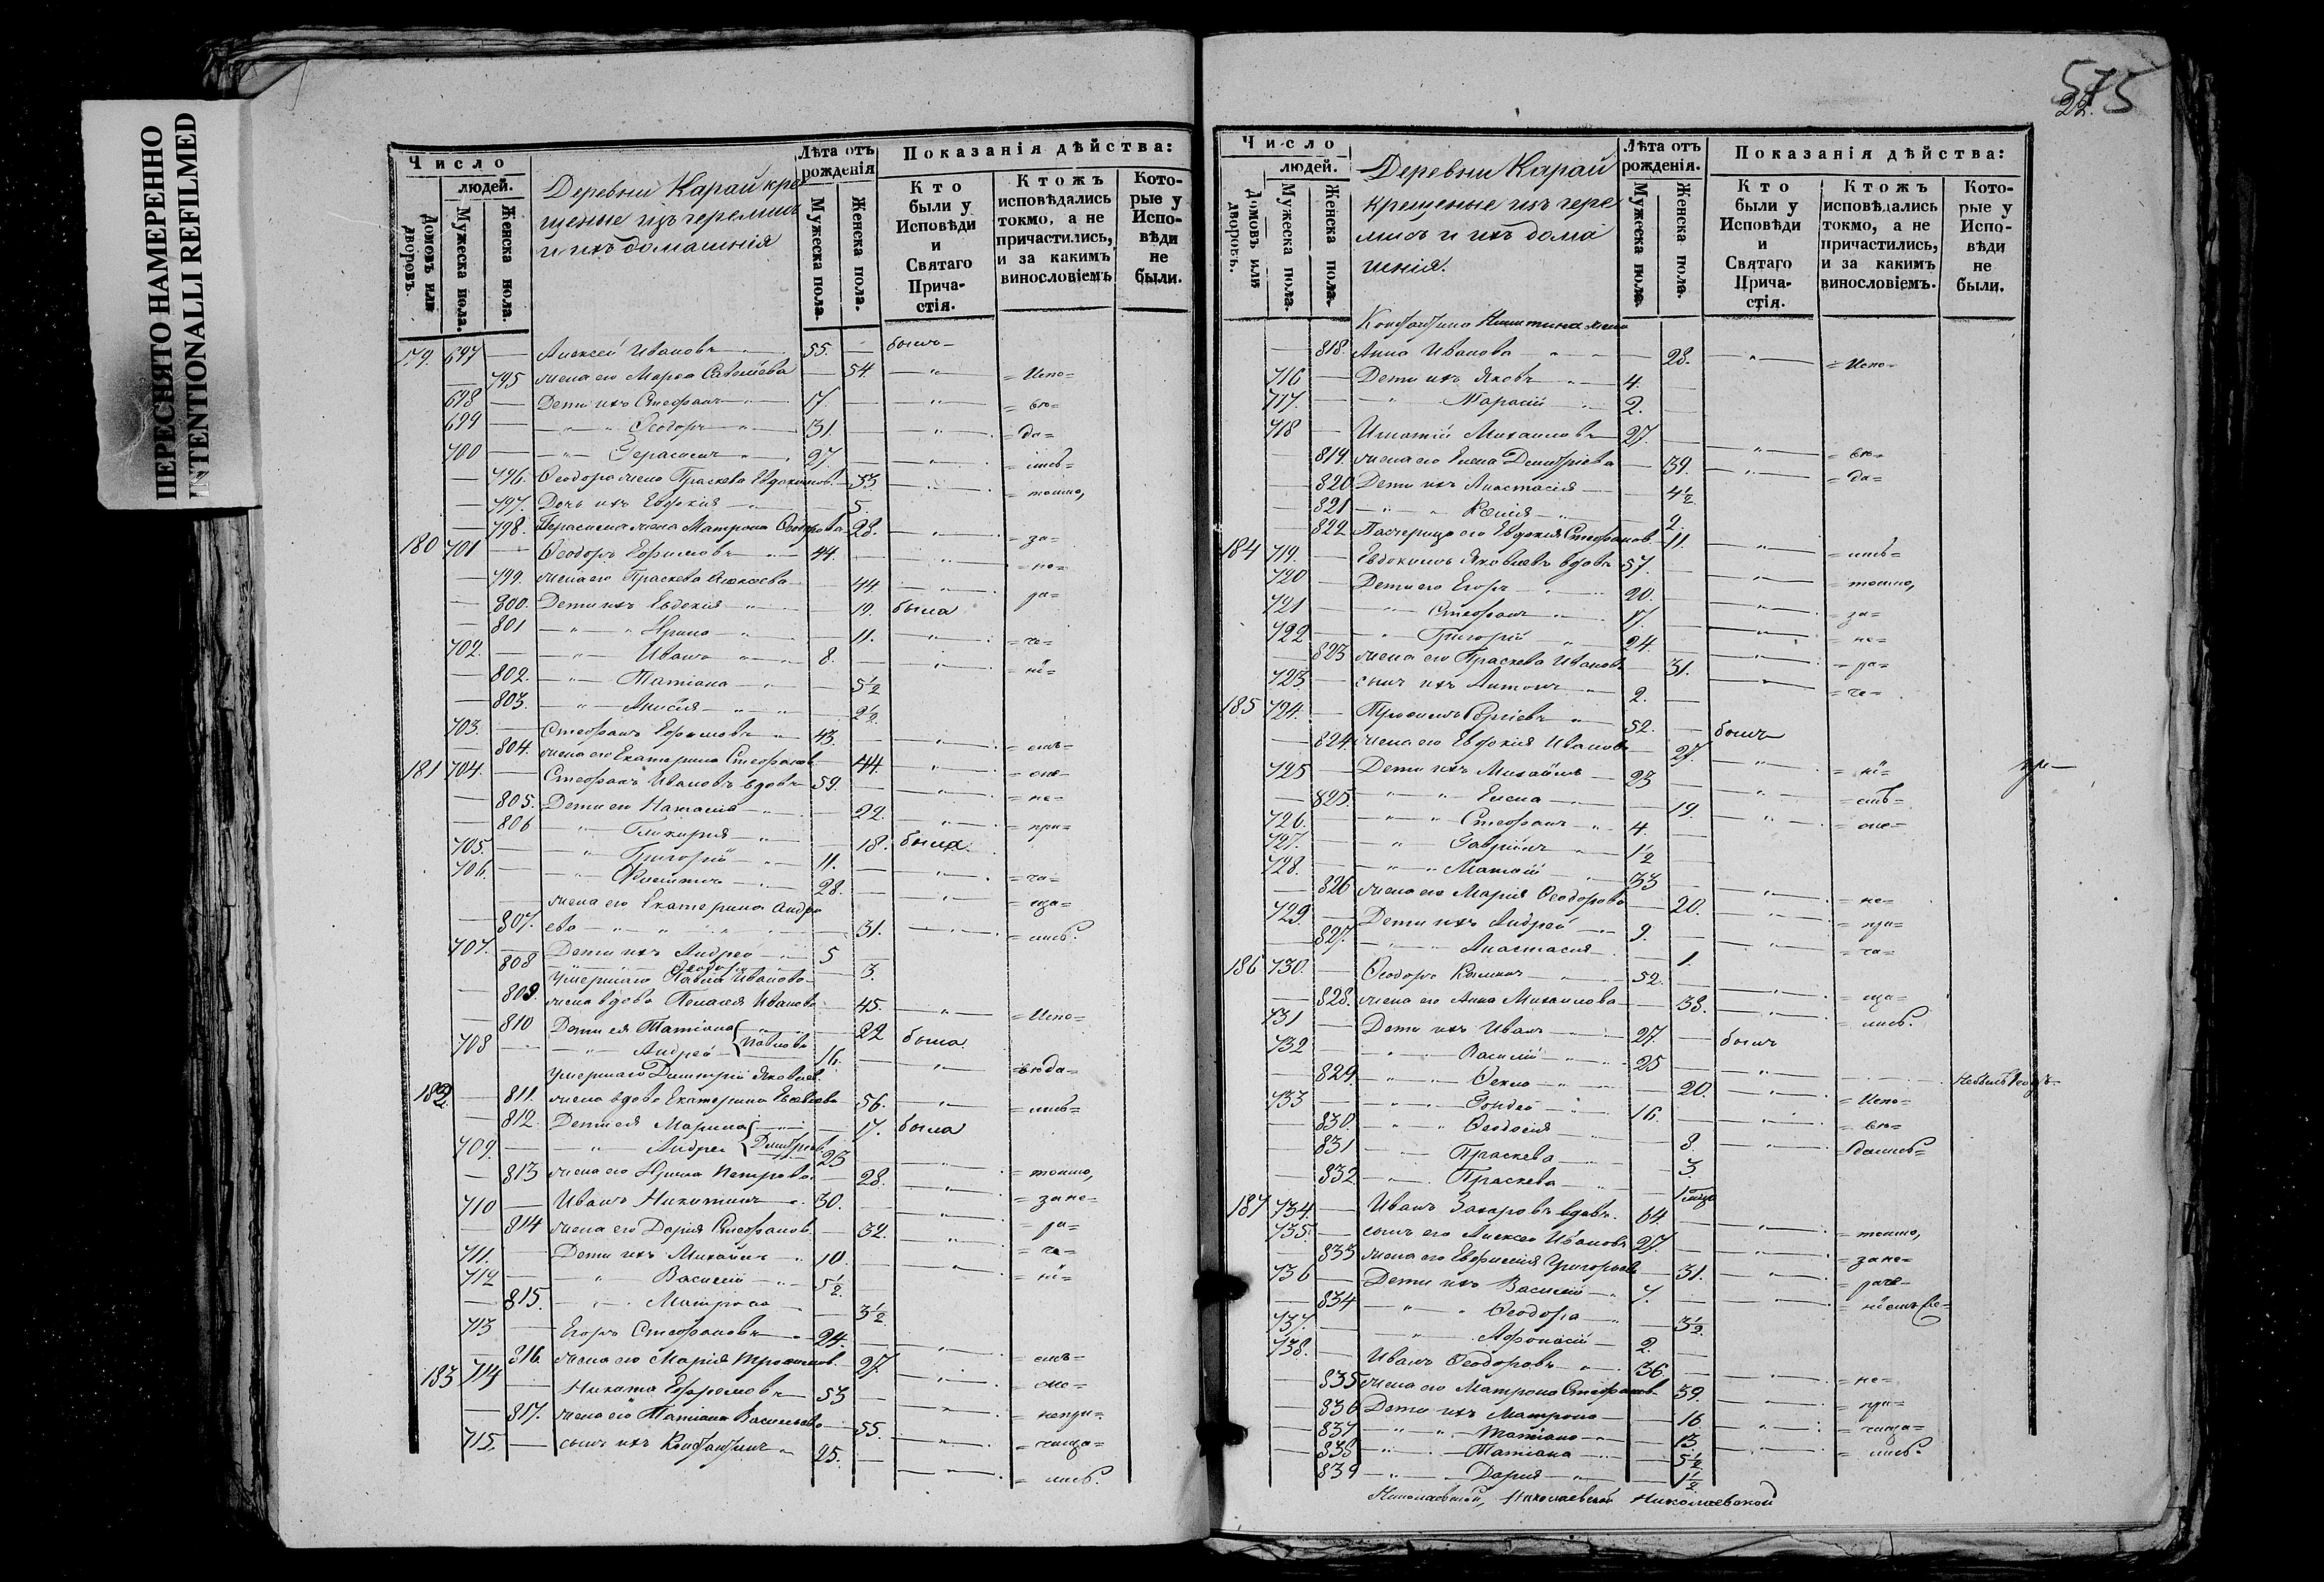 ПЕРЕСНЯТО НАМЕРЕННО
INTENTIONALLI REFILMED
Число
людей.
Домовъ или дворовъ.
Мужеска пола.
Женска пола.
Деревни Карай кре
щеные изъ черемисъ
и ихъ домашнія
Лѣта отъ рожденія
Мужеска пола.
Женска пола.
Показанія дѣйства:
Кто были у Исповѣди и Святаго Причастія.
Ктожъ исповѣдались токмо, а не причастились, и за какимъ винословіемъ
Которые у Исповѣди не были.
179. 697 — Алексей Ивановъ 55. — былъ
— 795 жена его Марфа Савельева — 54. = Испо=
698 — Дети ихъ Стефанъ 17. — = вѣ=
699 — Ѳеодоръ 31. — = да=
700 — Герасимъ 27 — = лись=
— 796. Ѳеодора жена Праскева Евдокимов. — 33 = токмо,
— 797. Дочь ихъ Евфимія — 5.
— 798. Герасима жена Матрона Ѳеодорова — 28. = за=
180 701 — Ѳеодоръ Ефимовъ 44. — = не=
— 799. жена его Праскева Алексеева — 44 = ра=
— 800. Дети ихъ Евдокия — 19. была
— 801 Ирина — 11. = че=
702. — Иванъ 8. — = ні=
— 802. Татіана — 5½
— 803. Анисія — 2½
703. — Стефанъ Ефимовъ 43. — = емъ=
— 804. жена его Екатерина Стефанов. — 44. = оне=
181 704. — Стефанъ Ивановъ вдовъ 59. — = не=
— 805. Дети его Наталія — 22. = при=
— 806 Гликерия — 18. была
705. — Григорій 11. — = ча=
706. — Филиппъ 28. — = ща=
жена его Екатерина Андре
— 807. ева — 31. = лись.
707. — Дети ихъ Андрей 5 —
— 808 — 3.
умершаго Павла Иванова
— 809. жена вдова Пелагея Иванова — 45. = Испо=
— 810 Дети ея Татіана Павлова — 22 была
708 — Андрей 16. — = вѣда=
умершаго Димитрія Яковлев.
182 — 811. жена вдова Екатерина — 56. = лись=
— 812. Дети ея Марина Димитріев. — 17. была
709. — Андрей 23 —
— 813 жена его Ирина Петрова — 28. = токмо,
710 — Иванъ Никитинъ 30. — = за не=
— 814 жена его Дарія Стефанов. — 32. = ра=
711. — Дети ихъ Михаилъ 10. — = че=
712 — Василій 5½ — = ні=
— 815. Матрона — 3½
713 — Егоръ Стефановъ 24. — = емъ=
— 816. жена его Марія Трофимов. — 27. = оне=
183 714 — Никита Ефремовъ 53 — = непри=
— 817. жена его Татіана Васильева — 55. = чаща=
715. — сынъ ихъ Константинъ 25. — = лись.
575
22.
Число
людей.
Домовъ или дворовъ.
Мужеска пола.
Женска пола.
Деревни Карай
крещеные изъ чере
мисъ и ихъ дома
шнія.
Лѣта отъ рожденія.
Мужеска пола.
Женска пола.
Показанія дѣйства:
Кто были у Исповѣди и Святаго Причастія.
Ктожъ исповѣдались токмо, а не причастились, и за какимъ винословіемъ.
Которые у Исповѣди не были.
Константина Никитина жена
— 818. Анна Иванова — 28. = Испо=
716 — Дети ихъ Яковъ 4. —
717. — Тарасій 2. —
718 — Игнатій Михаиловъ 27. — = вѣ=
— 819. жена его Елена Димитріева — 39. = да=
— 820 Дети ихъ Анастасія — 4½
— 821 Ксенія — 2.
— 822 Падчерица его Евдокия Стефанов. — 11. = лись=
184 719. — Евдокимъ Яковлевъ вдовъ 57 — = токмо,
720 — Дети его Егоръ 20. — = за=
721 — Стефанъ 17. — = не=
722 — Григорій 24 — = ра=
— 823 жена его Праскева Иванова — 31. = че=
723. — сынъ ихъ Антонъ 2. —
185 724. — Трофимъ Сергіевъ 52. — былъ
— 824. жена его Евфимія Иванова — 27. = ні=
725 — Дети ихъ Михаилъ 23 — = емъ=
— 825. Елена — 19. = оне=
726. — Стефанъ 4. —
727. — Гавріилъ 1½ —
728. — Матвій 33 — = не=
— 826 жена его Марія Ѳеодорова — 20. = при=
729. — Дети ихъ Андрей 9. — = ча=
— 827. Анастасия — 1.
186 730. — Ѳеодоръ 52. — = ща=
— 828. жена его Анна Михаилова — 38. = лись.
731 — Дети ихъ Иванъ 27. — былъ
732 — Василій 25 —
— 829 Ѳекла — 20. = Испо=
733 — Гордей 16. — = вѣ=
— 830. Ѳеодосія — 8. = дались=
— 831 Праскева — 3.
— 832 Праскева —
187 734. — Иванъ Захаровъ вдовъ. 64. — = токмо,
735. — сынъ его Алексей Ивановъ 27. — = за не=
— 833 жена его Евфимія Григорьева — 31. = раче=
736 — Дети ихъ Василій 7. —
— 834 Ѳеодора — 3½
737. — Афонасій 2. —
738. — Иванъ Ѳеодоровъ 36. — = не=
— 835 жена его Матрона Стефанов. — 39. = при=
— 836 Дети ихъ Матрона — 16. = чаща=
— 837 Татіана — 13 = лись.
— 838 Татіана — 5½
— 839 Дарія — 1½
Николаевской, Николаевской Николаевской